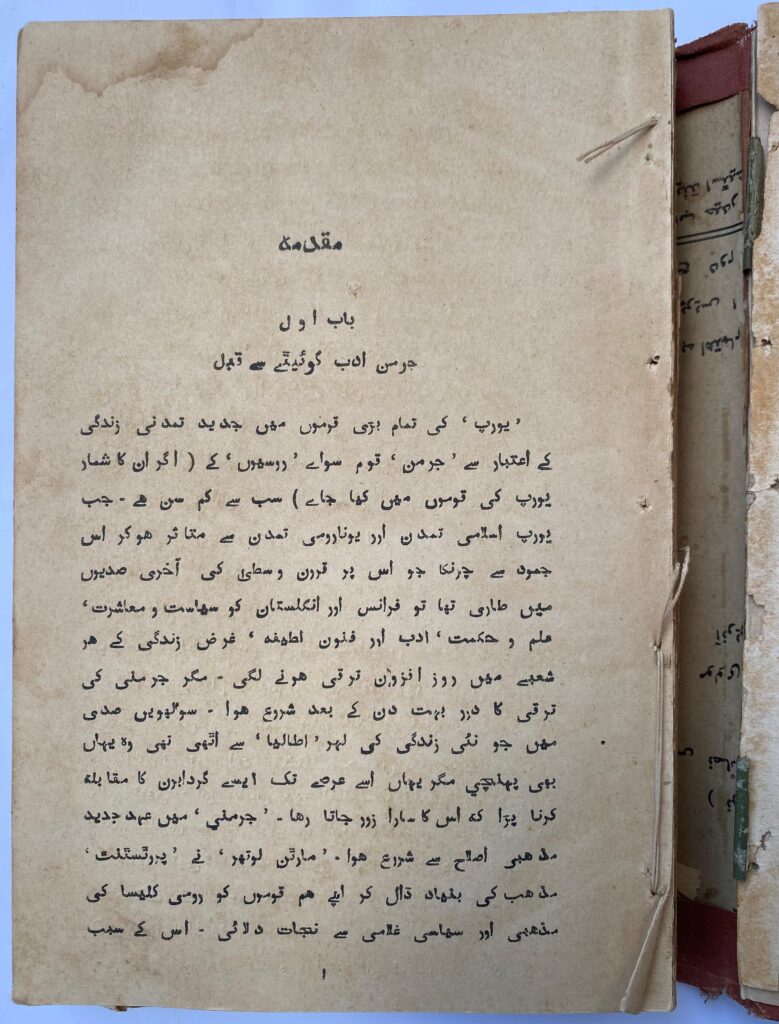 مقدمہ
باب اول
جرمن ادب گوئیٹے سے قبل
’یورپ‘ کی تمام بڑی قوموں میں جدید تمدنی زندگی
کے اعتبار سے ’جرمن‘ قوم سواے ’روسیوں‘ کے ( اگر ان کا شمار
یورپ کی قوموں میں کیا جاے ) سب سے کم سن ہے - جب
یورپ اسلامی تمدن اور یونارومی تمدن سے متاثر ہوکر اس
جمود سے چونکا جو اس پر قرون وسطیٰ کی آخری صدیوں
میں طاری تھا تو فرانس اور انگلستان کو سیاست و معاشرت‘
علم و حکمت‘ ادب اور فنون لطیفہ‘ غرض زندگی کے ہر
شعبے میں روز افزوں ترقی ہونے لگی - مگر جرمنی کی
ترقی کا دور بہت دن کے بعد شروع ہوا - سولھویں صدی
میں جو نئی زندگی کی لہر ’اطالیا‘ سے اٹھی تھی وہ یہاں
بھی پہنچی مگر یہاں اسے عرصے تک ایسے گردابوں کا مقابلہ
کرنا پڑا کہ اس کا سارا زور جاتا رہا - ’جرمنی‘ میں عہد جدید
مذہبی اصلاح سے شروع ہوا - ’مارٹن لوتھر‘ نے ’پروٹسٹنٹ‘
مذہب کی بنیاد ڈال کر اپنے ہم قوموں کو رومی کلیسا کی
مذہبی اور سیاسی غلامی سے نجات دلائی - اس کے سبب
۱